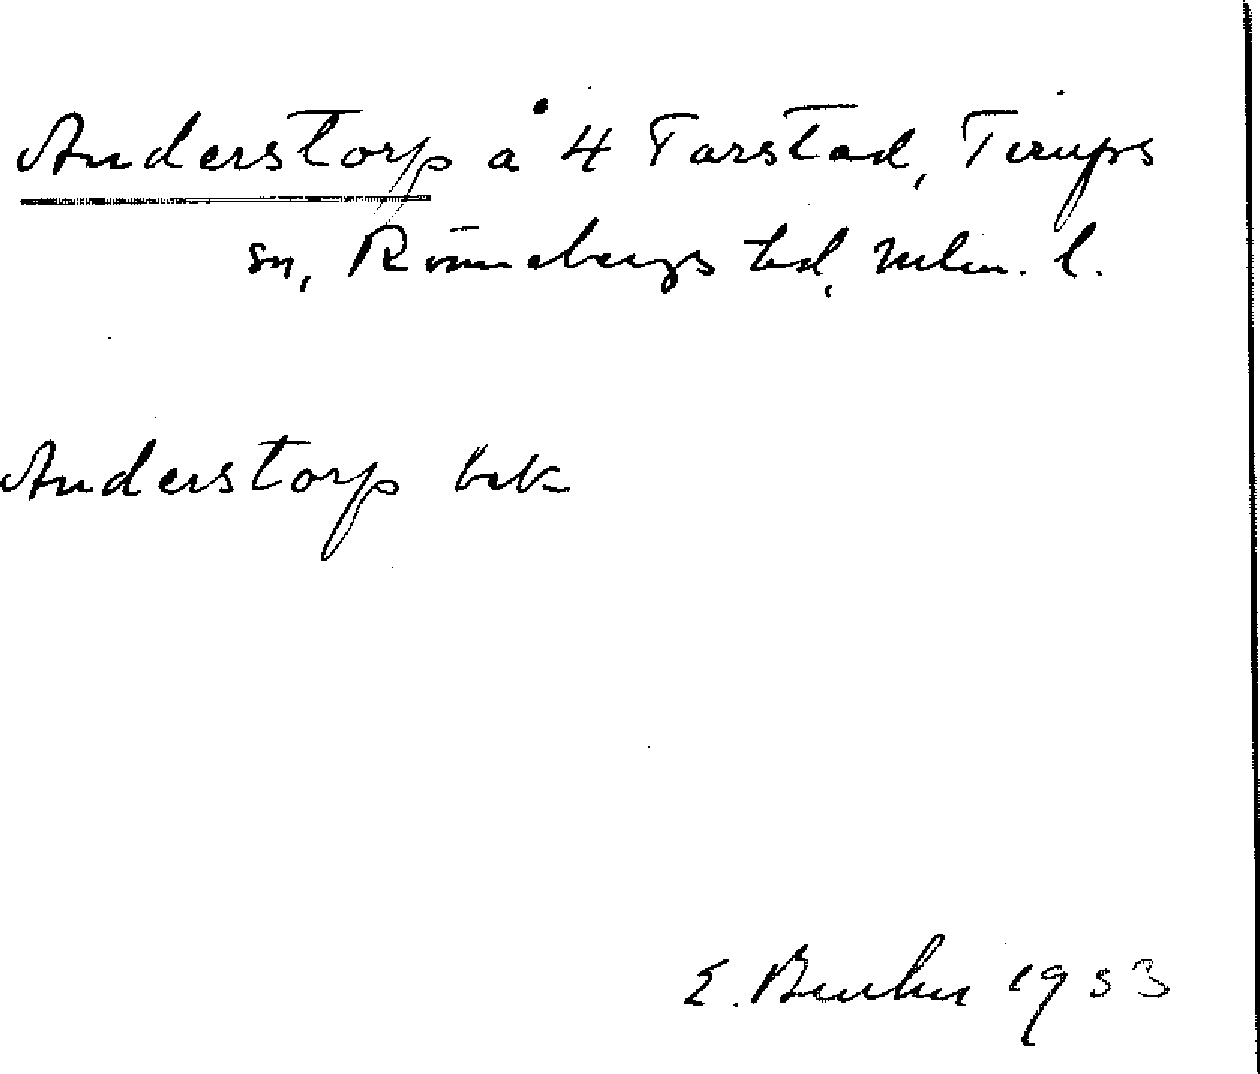 Anderstorp å 4 Tarstad, Tirups
sn, Rönnebergs hd, Mlm. l.
Anderstorp bek
E. Buuhu 1953